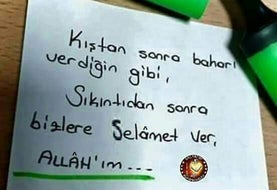 Kıştan sonra baharı
verdiğin gibi,
Sıkıntıdan sonra
bizlere Selâmet ver,
ALLÂH'ım...